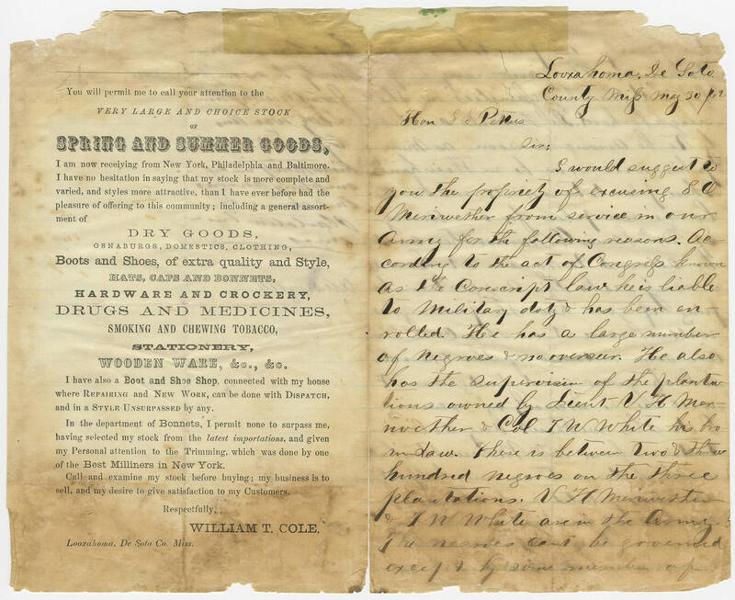 You will permit me to call your attention to the
VERY LARGE AND CHOICE STOCK
OF
SPRING AND SUMMER GOODS,
I am now receiving from New York, Philadelphia and Baltimore.
I have no hesitation in saying that my stock is more complete and
varied, and styles more attractive, than I have ever before had the
pleasure of offering to this community; including a general assort-
ment of
DRY GOODS,
OSNABURGS, DOMESTICS, CLOTHING,
Boots and Shoes, of extra quality and Style,
HATS, CAPS AND BONNETS,
HARDWARE AND CROCKERY,
DRUGS AND MEDICINES,
SMOKING AND CHEWING TOBACCO,
STATIONERY,
WOODEN WARE, &c., &c.
I have also a Boot and Shoe Shop, connected with my house
where REPAIRING and NEW WORK, can be done with DISPATCH,
and in a STYLE UNSURPASSED by any.
In the department of Bonnets, I permit none to surpass me,
having selected my stock from the latest importations, and given
my Personal attention to the Trimming, which was done by one
of the Best Milliners in New York.
Call and examine my stock before buying; my business is to
sell, and my desire to give satisfaction to my Customers.
Respectfully,
WILLIAM T. COLE.
Looxahoma, De Soto Co. Miss.
Looxahoma, De Soto
County Miss May 30
Hon Pettus
Sir;
I would suggest to
you the propriety of excusing
Meriwether from service in our
Army for the following reasons. Ac
cording to the act of Congress known
as the Conscript law he is liable
to Military duty & has been en
rolled. He has a large number
of negroes & no overseer. He also
has the supervision of the planta
tions owned by Lieut V H Meri
wether & Col T W White his bro
in law. There is between two & three
hundred negroes on the three
plantations. V H Meriwether
& T W White are in the Army
The negroes cant be governed
except by some member of